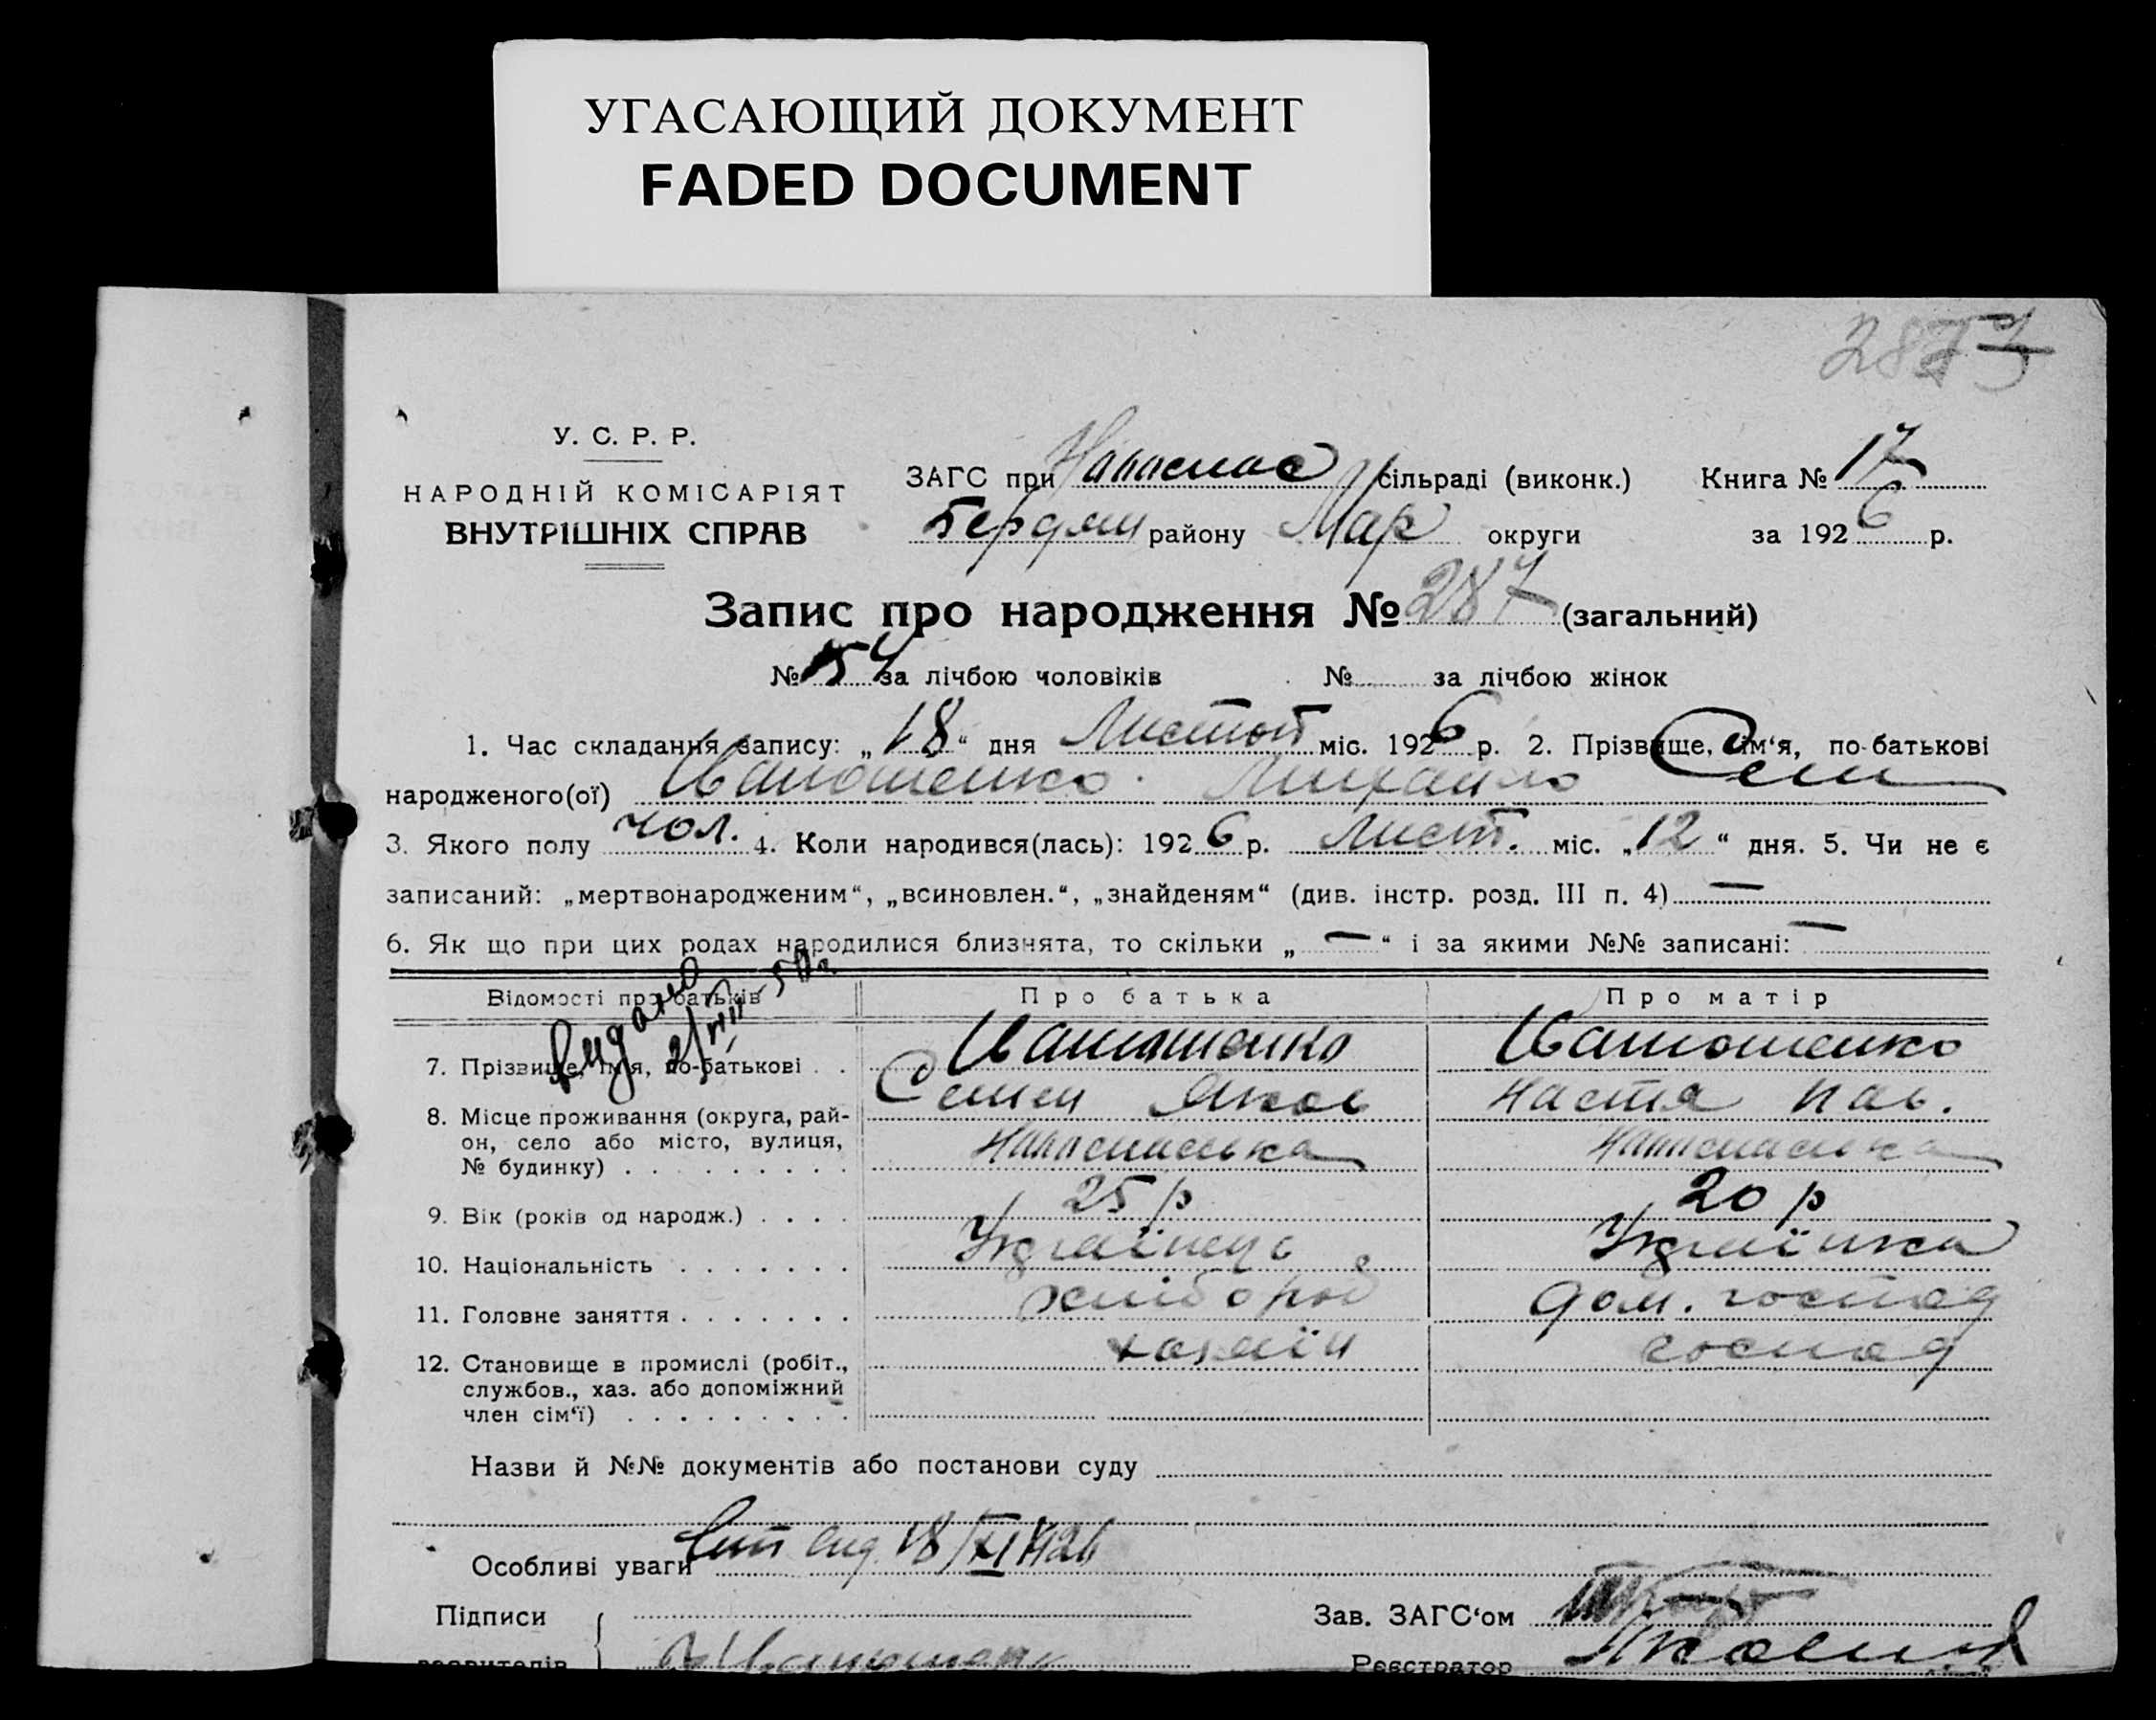 УГАСАЮЩИЙ ДОКУМЕНТ
FADED DOCUMENT
287
У. С. Р. Р.
НАРОДНІЙ КОМІСАРІЯТ
ВНУТРІШНІХ СПРАВ
ЗАГС при Новоспас сільраді (виконк.) Книга № 17
Бердян району Мар округи за 1926 р.
Запис про народження № 287 (загальний)
№ 154 за лічбою чоловіків № за лічбою жінок
1. Час складання запису: „18“ дня Листоп міс. 1926 р. 2. Прізвище, ім‘я, по-батькові
народженого(ої) Иванюшенко Михайло Сем
3. Якого полу чол. 4. Коли народився(лась): 1926 р. Лист. міс. „12“ дня. 5. Чи не є
записаний: „мертвонародженим“, „всиновлен.“, „знайденям“ (див. інстр. розд. III п. 4) —
6. Як що при цих родах народилися близнята, то скільки „—“ і за якими №№ записані: —
Відомості про батьків Про батька Про матір
видано
7. Прізвище, ім‘я, по-батькові . . Иванюшенко Иванюшенко
Семен Яков Настя Пав.
8. Місце проживання (округа, рай-
он, село або місто, вулиця,
№ будинку) . . . . . . . . . Новоспаська Новоспаська
9. Вік (років од народж.) . . . . 25 р 20 р
10. Національність . . . . . . . Українець Українка
11. Головне заняття . . . . . . . хлібороб дом. господ
12. Становище в промислі (робіт.,
службов., хаз. або допоміжний
член сім‘ї) . . . . . . . . . хазяїн господ
Назви й №№ документів або постанови суду
Особливі уваги Вит вид 18/XI 1926
Підписи
заявителів Иванюшенк
Зав. ЗАГС‘ом
Реєстратор